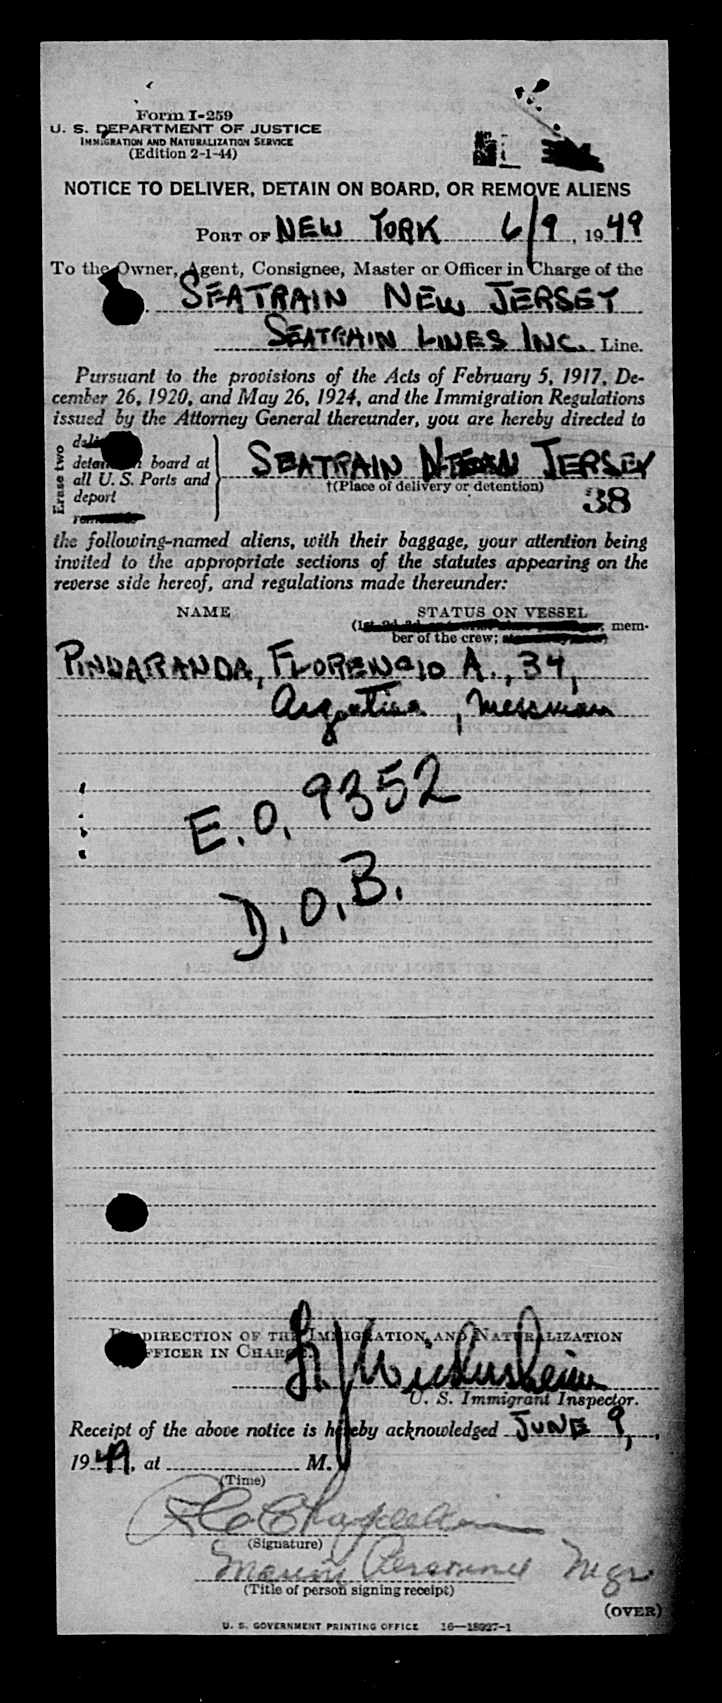 Form I-259
U. S. DEPARTMENT OF JUSTICE
IMMIGRATION AND NATURALIZATION SERVICE
(Edition 2-1-44)
NOTICE TO DELIVER, DETAIN ON BOARD, OR REMOVE ALIENS
PORT OF NEW YORK 6/9, 1949
To the Owner, Agent, Consignee, Master or Officer in Charge of the
SEATRAIN NEW JERSEY
SEATRAIN LINES INC. Line.
Pursuant to the provisions of the Acts of February 5, 1917, De-
cember 26, 1920, and May 26, 1924, and the Immigration Regulations
issued by the Attorney General thereunder, you are hereby directed to
Erase two
detain board at
all U. S. Ports and
deport
SEATRAIN JERSEY
†(Place of delivery or detention)
38
the following-named aliens, with their baggage, your attention being
invited to the appropriate sections of the statutes appearing on the
reverse side hereof, and regulations made thereunder:
NAME STATUS ON VESSEL
mem-
ber of the crew;
PINDARANDA, FLORENCIO A., 34,
Argentina, Messman
E.O. 9352
D.O.B.
DIRECTION OF THE IMMIGRATION AND NATURALIZATION
OFFICER IN CHARGE.
U. S. Immigrant Inspector.
Receipt of the above notice is hereby acknowledged JUNE 9,
1949, at M.
(Time)
(Signature)
Marine Personnel Mgr
(Title of person signing receipt)
(OVER)
U. S. GOVERNMENT PRINTING OFFICE 16—18927-1